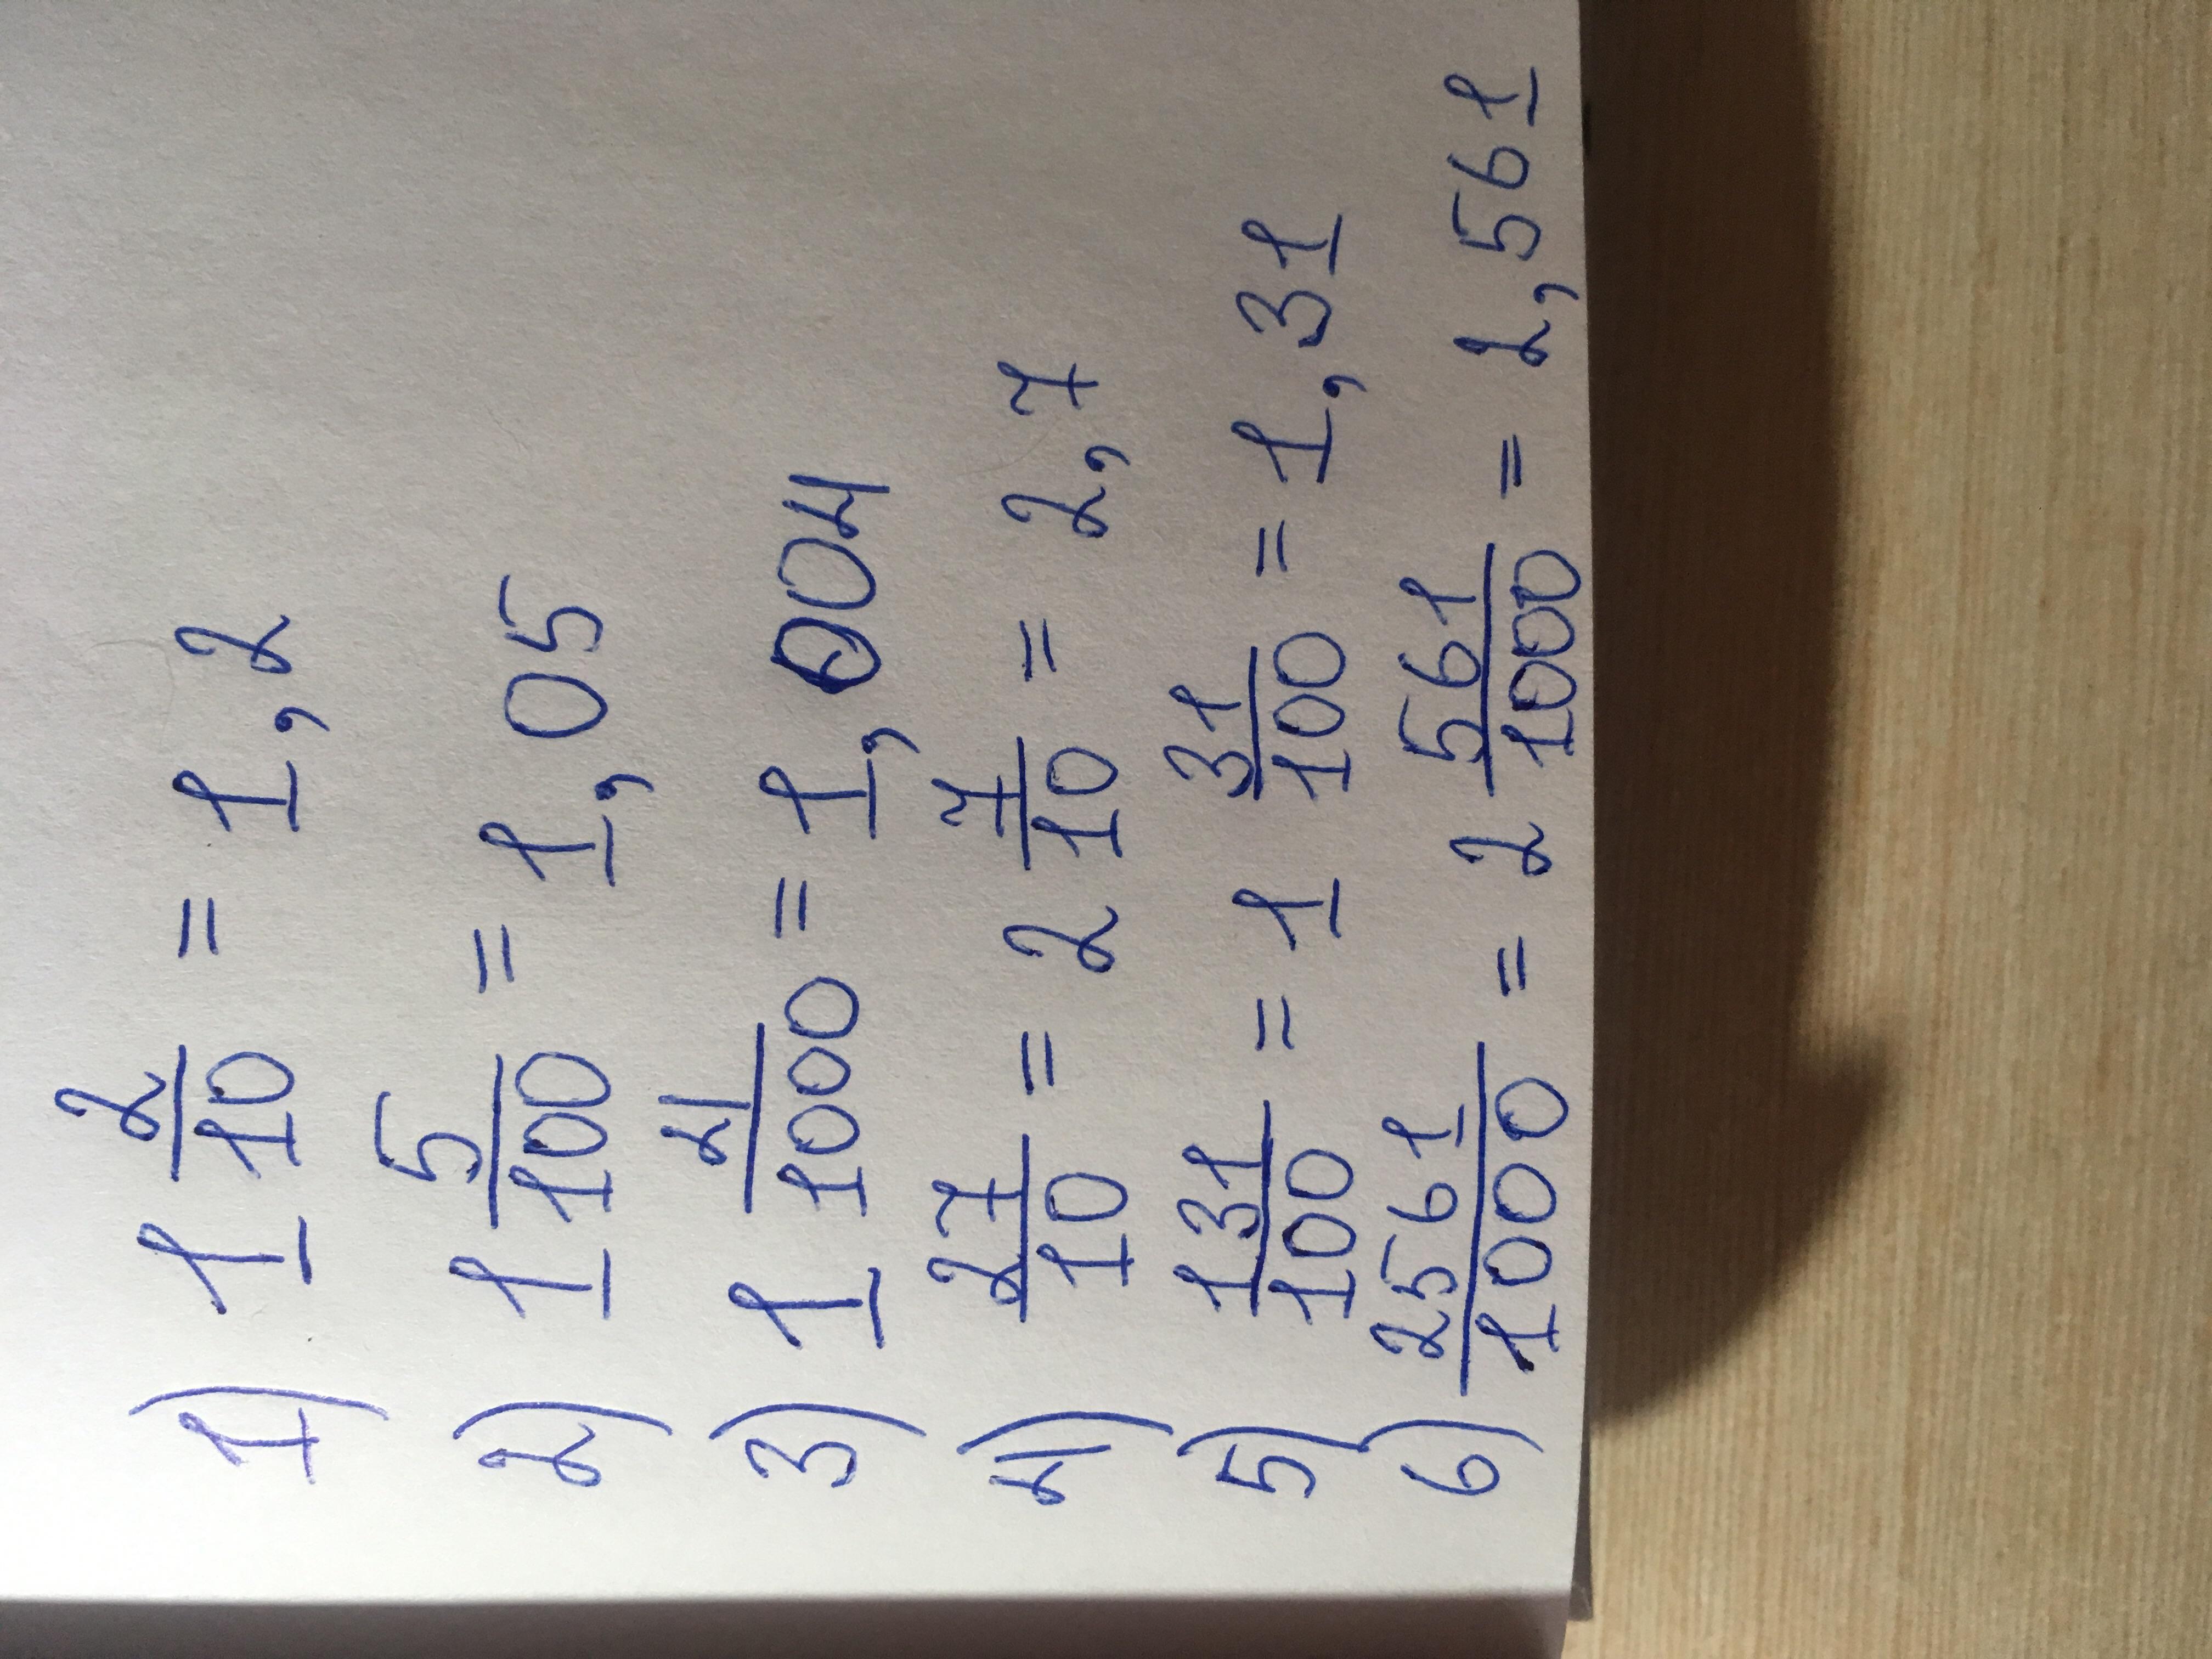 1) 1 2/10 = 1,2
2) 1 5/100 = 1,05
3) 1 4/1000 = 1,004
4) 27/10 = 2 7/10 = 2,7
5) 131/100 = 1 31/100 = 1,31
6) 2561/1000 = 2 561/1000 = 2,561